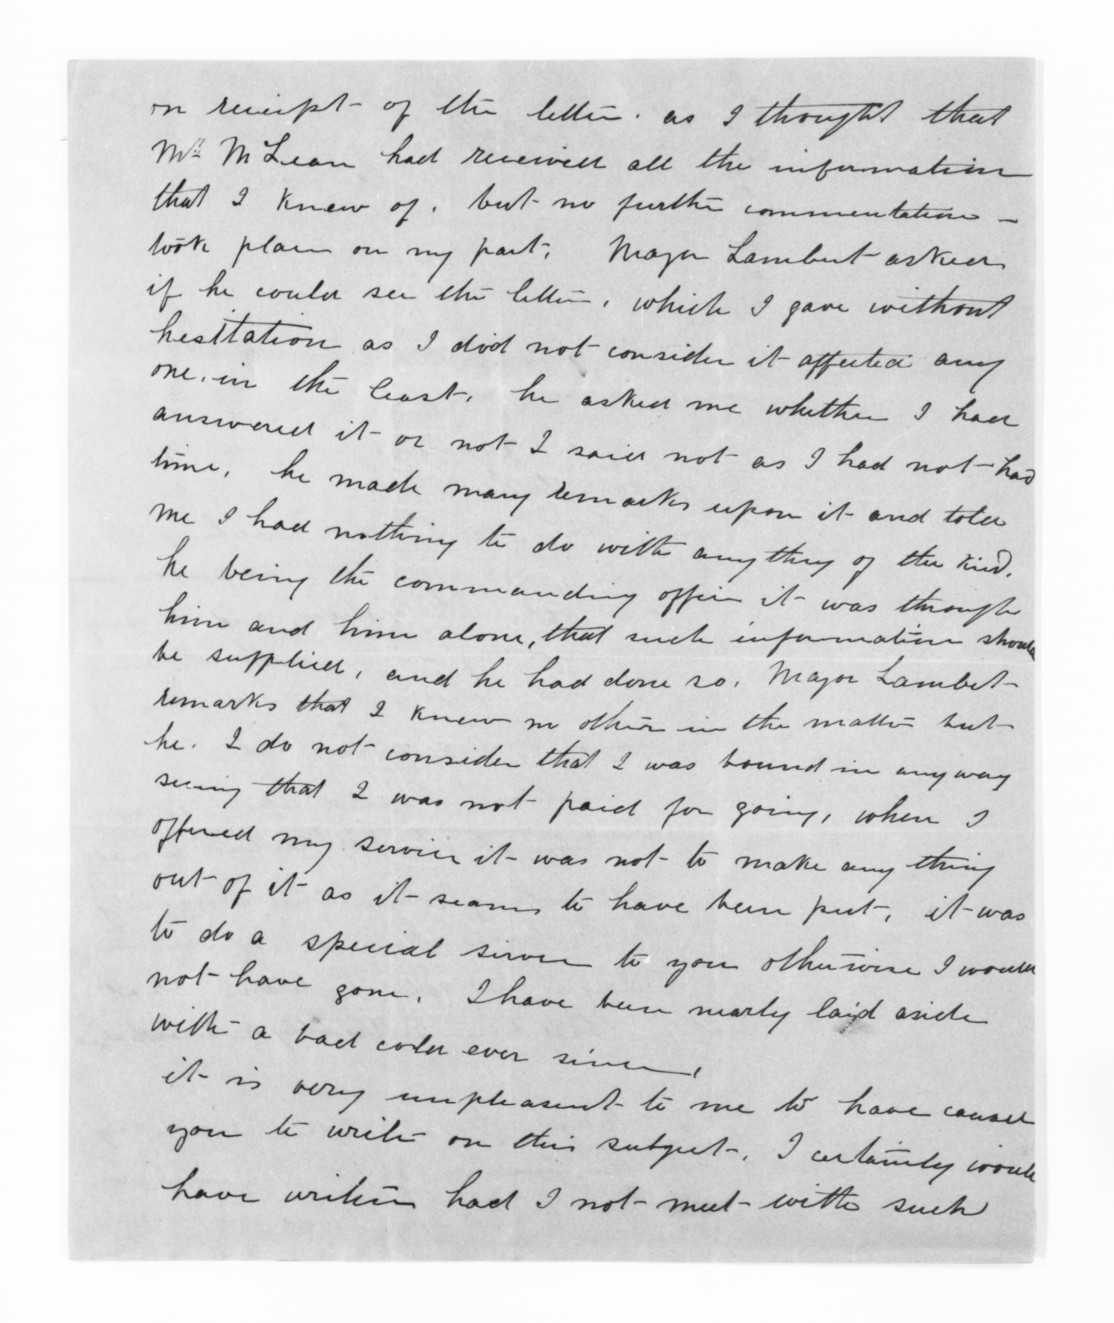 on receipt of the letter. as I thought that
Mr McLean had received all the information
that I knew of. but no further commentation
took place on my part. Major Lambert asked
if he could see the letter. which I gave without
hesitation as I did not consider it affected any
one. in the least. he asked me whether I had
answered it or not I said not as I had not had
time. he made many remarks upon it and told
me I had nothing to do with any thing of the kind.
he being the commanding officer it was through
him and him alone, that such information should
be supplied, and he had done so. Major Lambert
remarks that I knew no other in the matter but
he. I do not consider that I was bound in any way
seeing that I was not paid for going, when I
offered my service it was not to make any thing
out of it as it seams to have been put, it was
to do a special service to you otherwise I would
not have gone. I have been nearly laid aside
with a bad cold ever since,
it is very unpleasent to me to have caused
you to write on this subject. I certainly would
have written had I not meet with such